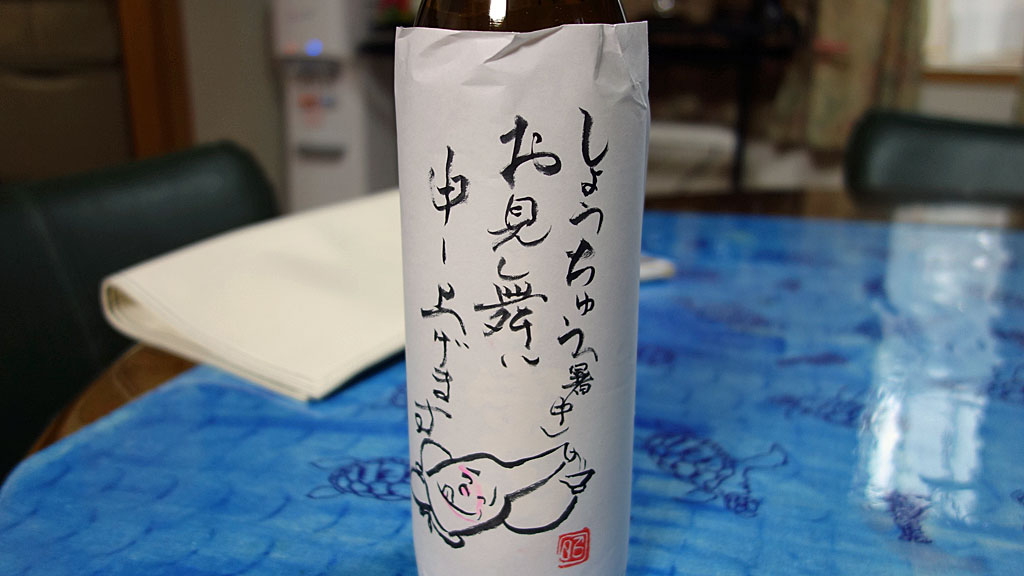 しょうちゅう(暑中)
お見し舞い
申し上げます